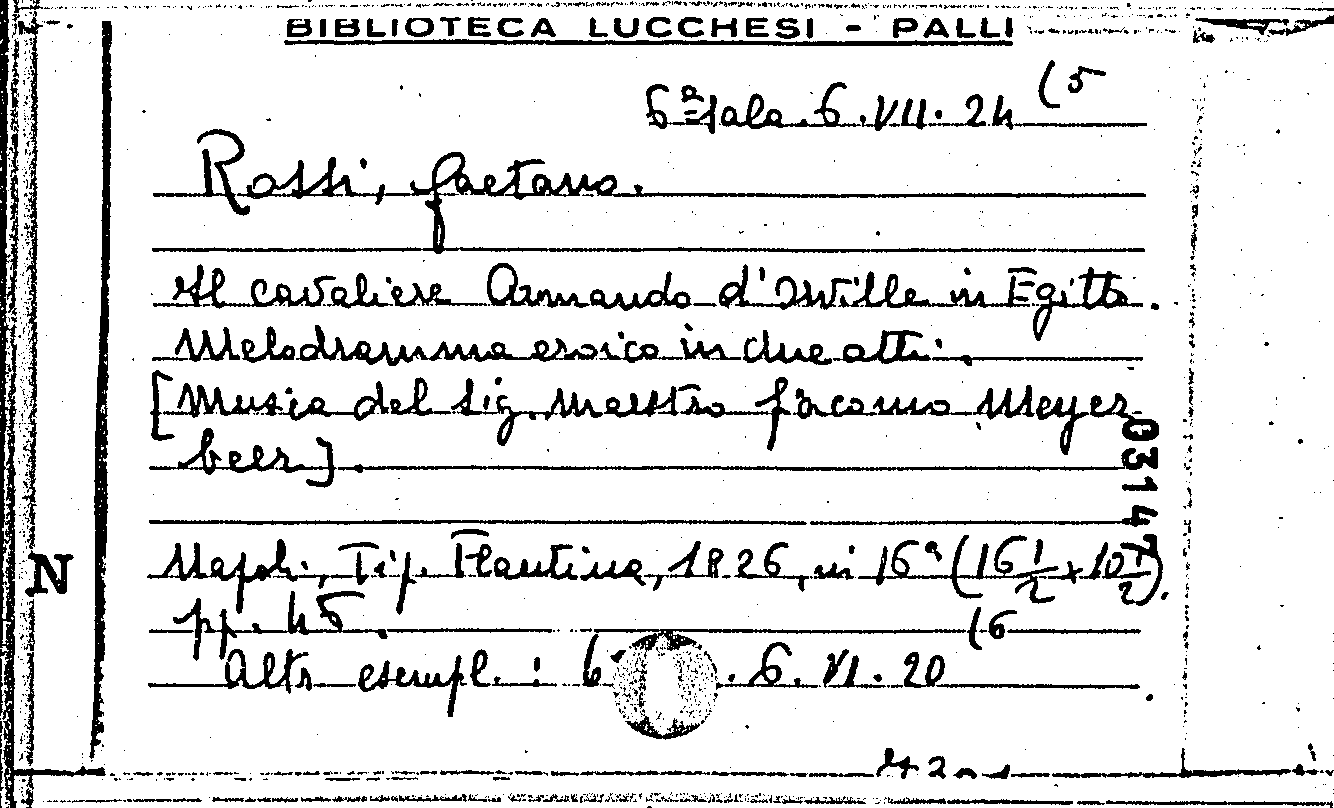 BIBLIOTECA LUCCHESI - PALLI
6ª Sala. 6. VII. 24 (5
Rossi, Gaetano.
Il cavaliere Armando d'Orville in Egitto.
Melodramma eroico in due atti.
[Musica del Sig. Maestro Giacomo Meyer
beer].
03147
N
Napoli, Tip. Flautina, 1826, in 16º (16 1/2 x 10 1/2).
pp. 45.
Altr esempl. : 6 . 6. VI. 20 (6